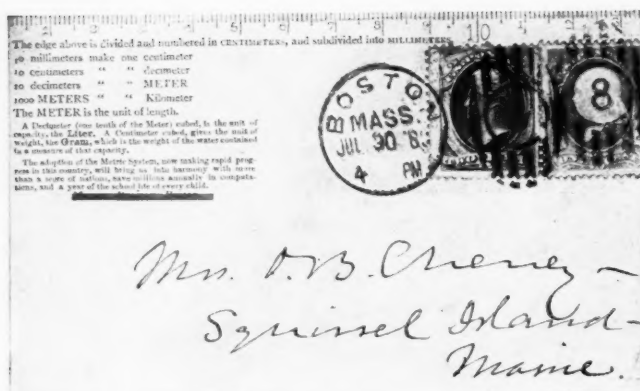 10
The edge above is divided and numbered in CENTIMETERS, and subdivided into MILLIMETERS
10 millimeters make one centimeter
10 centimeters " " decimeter
10 decimeters " " METER
1000 METERS " " Kilometer
The METER is the unit of length.
A Decimeter (one tenth of the Meter) cubed, is the unit of
capacity, the Liter. A Centimeter cubed, gives the unit of
weight, the Gram, which is the weight of the water contained
in a measure of that capacity.
The adoption of the Metric System, now making rapid prog-
ress in this country, will bring us into harmony with more
than a score of nations, save millions annually in computa-
tions, and a year of the school life of every child.
BOSTON
MASS.
JUL 30
4 PM
8
Mrs. B. Cheney –
Squirrel Island –
Maine.